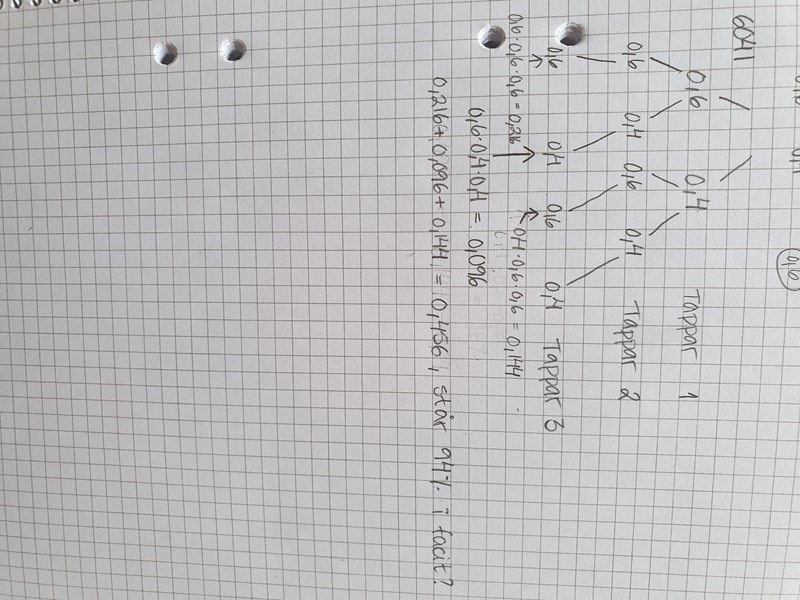 6041
0,6
0,6 0,4 Tappar 1
0,6 0,4 0,6 0,4 Tappar 2
0,6 0,4 0,6 0,4 Tappar 3
0,6·0,6·0,6=0,216 0,4·0,6·0,6=0,144
0,6·0,4·0,4=0,096
0,216+0,096+0,144=0,456, står 94% i facit?